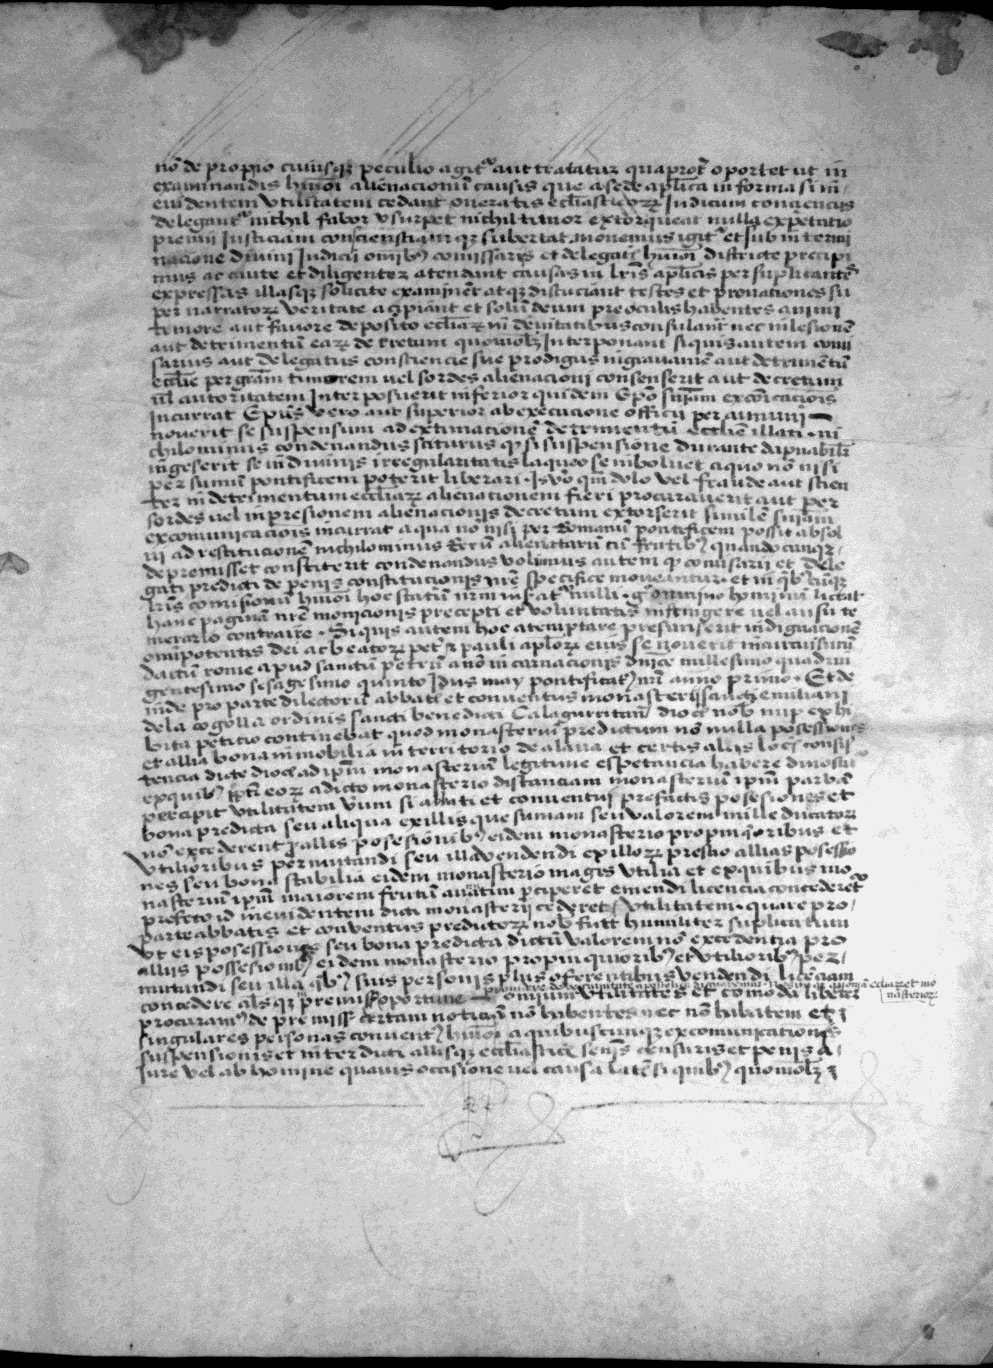 nō de propio cuiusqȝ peculio agit͛ aut tratatur quaprot͛ oportet ut in
examinandis huiōi alienacionū causis que a sede aplīca in forma si in
euidentem utilitatem cedant oueratis eclīasticoꝝ Judicum congencijs
delegant͛ nichil fabor usurpet nichil timor extorqueat nulla expetatio
premij Justiciam conscienstiam qȝ subertat monemus igit͛ et sub intermi
nacione diuini Judicij omībꝰ comissarijs et delegatis huiōi districte precipi
mus ac caute et diligenter atendant causas in lr̄is aplīcis per suplicantes
expressas illasqȝ solicite examinēt atqȝ discuciant testes et prouationes su
per narratoꝝ ueritate acipiant et solū deum pre oculis habentes animi
temore aut fauore deposito eclīaꝝ indēnitatibus consulant nec in lesionē
aut detrimentū eaꝝ decretum quomolȝ Interponant si quis autem comi
sarius aut delegatus consciencie sue prodigus in grauamē aut detrimētū
eclīe per grām timorem uel sordes alienacioni consenserit aut decretum
ul̄ autoritatem Interposuerit inferior quidem Epō sn̄iam excōicacionis
Incurrat Ep̄us vero aut superior ab execucione officij per annum
nouerit se suspensum ad extimacionē detrimentū eclīe illati · ni
chilominus condenandus sciturus qꝫ si suspensione durante dapnabilr̄
ingeserit se in diuinis irregularitatis laqueo se inboluet a quo nō nisi
per sumū pontificem poterit liberari · Is v̄o qui dolo vel fraude aut scien
ter in detrimentum eclīaꝝ alienationem fieri procurauerit aut per
sordes uel inpresionem alienacionis decretum extorserit similē sn̄iam
excomunicacionis incurrat a qua nō nisi per Romanū pontificem possit absol
ui ad restitucionē nichilominus Rerū alienatarū cū frutibꝰ quandocunqȝ
de premisset constiterit condenandus volumus autem qꝫ comisarij et dele
gati predicti de penis constitucionis nr̄e specifice moueantur · et in qꝫbꝰ cūqȝ
lr̄is comisionū huiōi hoc statum nr̄m inserat͛ nulli · g͛ omnino hominū liceat
hanc paginā nr̄e monicionis precepti et voluntatis infringere uel ausu te
merario contraire · Si quis autem hoc atemptare presunserit indignacionē
omīpotentis dei ac beatoꝝ pet͛ ⁊ pauli aplōꝝ eius se nouerit incursurum
datū rome apud sanctū petrū anō incarnacionis dnīce millesimo quadrin
gentesimo sesagesimo quinto Idus may pontificat͛ nr̄i anno primo · Et de
inde pro parte dilectorū abbatis et conuentus monasterij sancti emiliani
de la cogolla ordinis sancti benedicti Calagurritan͛ dioc͛ nob͛ nup͛ exhi
bita peticio continebat quod monasteriū predictum nō nulla posessiones
et allia bona inmobilia in territorio de alaua et certis allis locis consis
tencia dicte dioc͛ ad ipm̄ monasteriū legitime espetancia habere dinosit͛
ex quibꝰ ꝓpt͛ eoꝝ a dicto monasterio distanciam monasteriū ipm̄ parbā
percipit utilitatem v̄um si abbati et conuentui prefactis posesiones et
bona predicta seu aliqua ex illis que sumam seu valorem mille ducatoꝝ
nō excederent ꝓ allis posesionibꝰ eidem monasterio propinqꝫoribus et
utilioribus permutandi seu illa vendendi ex illoꝝ prescio allias posessio
nes seu bona stabilia eidem monasterio magis utilia et ex quibus mo
nasteriū ipm̄ maiorem frutū anatim perciperet emendi licencia concederet͛
prefecto id in euidentem dicti monasterij cederet utilitatem · quare pro
parte abbatis et conuentus predictoꝝ nob͛ fuit humiliter suplicatum
ut eis posessiones seu bona predicta dictū valorem nō excedentia pro
allijs possesionibꝰ eidem monasterio propinquioribꝰ et utilioribꝰ per
mutandi seu illa qꝫbꝰ suis personis plus oferentibus vendendi licēciam
concedere alsqȝ in premisis oportune omium utilitates et comoda libeter
procuramꝰ de premiss͛ certam noticiā nō habentes nec nō habatem et ⁊
singulares personas conuentꝰ huiōi a quibuscunqȝ excomunicationis
suspensionis et interdicti allisqȝ eclīasticis senis censuris et penis a
Jure vel ab homine quauis occasione uel causa latis si quibꝰ quomolȝ ⁊